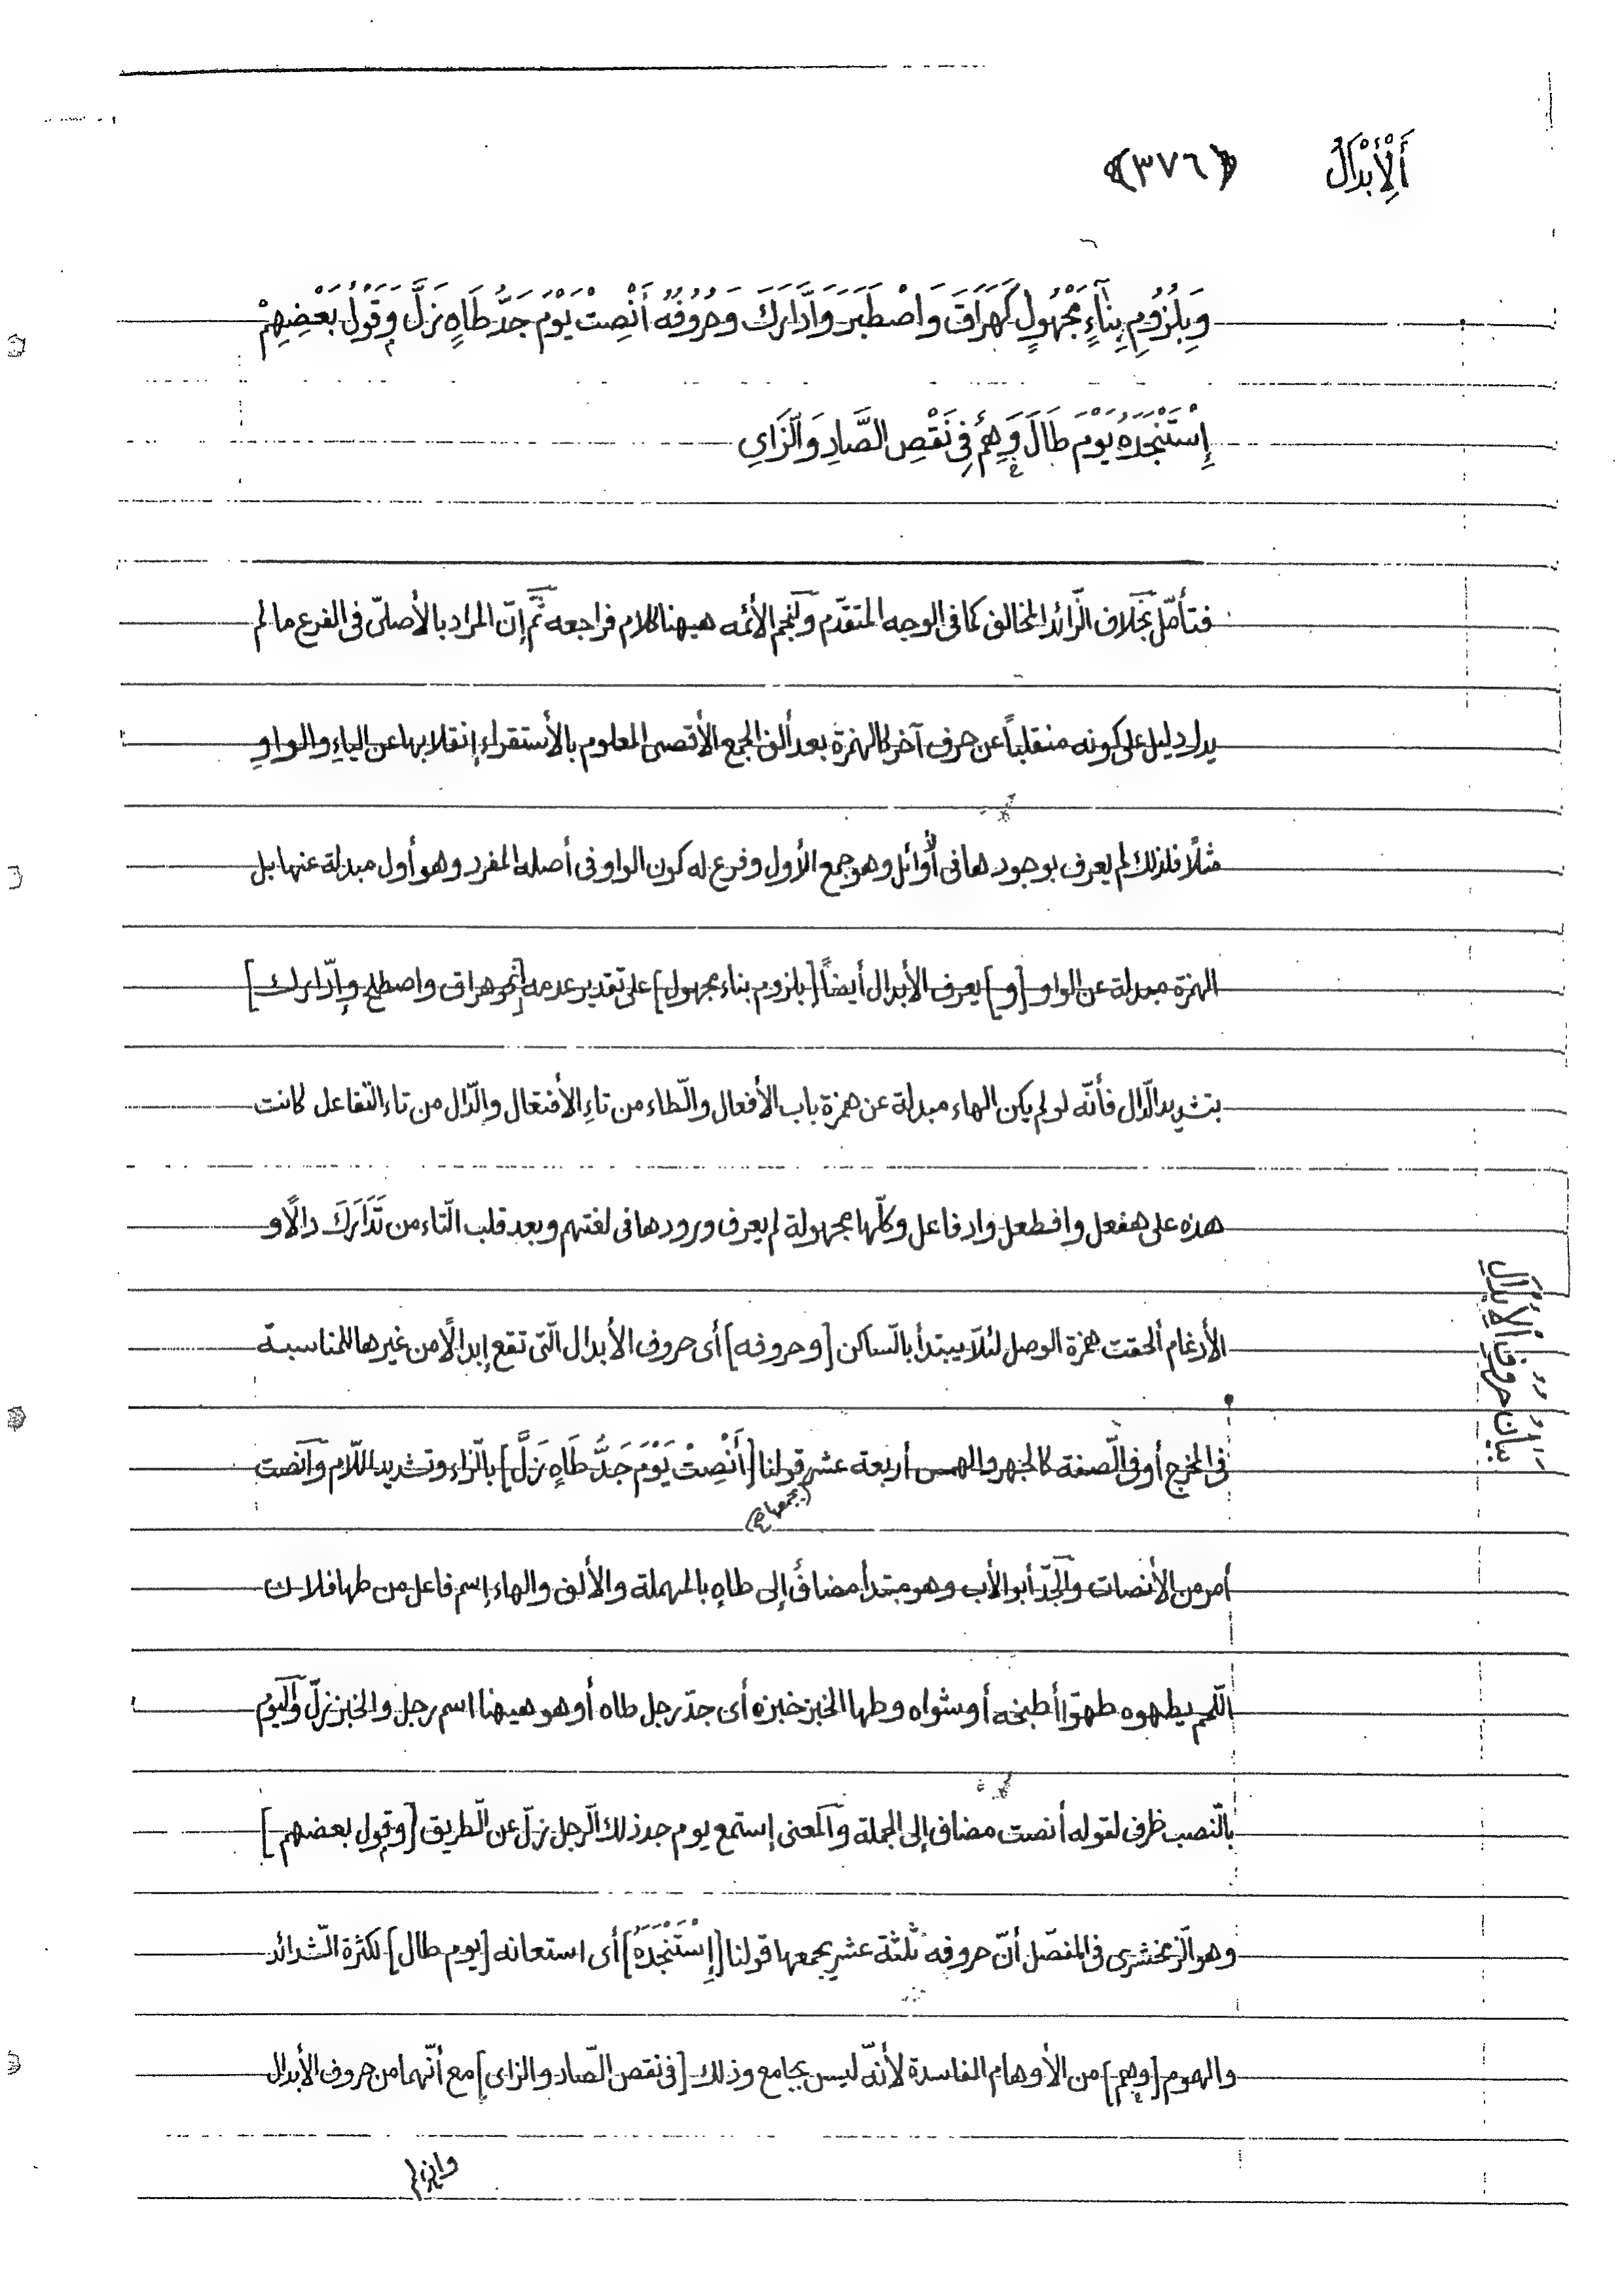 أَلْأِبْدَالُ ﴿٣٧٦﴾
وَبِلُزُومِ بِنَآءٍ مَجْهُولٍ كَهَرَاقَ وَاصْطَبَرَ وَادَّارَكَ وَحُرُوفُهُ أَنْصِتْ يَوْمَ جَدُّ طَاهٍ زَلَّ وَقَوْلُ بَعْضِهِمْ
إِسْتَنْجَدَهُ يَوْمَ طَالَ وَهِمٌ فِي نَقْصِ الصَّادِ وَالزَّايِ
فتأمّل بخلاف الزّائد المخالف كما في الوجه المتقدّم ولنجم الأئمه هيهنا كلام فراجعه ثمّ إنّ المراد بالأصلىّ فى الفرع ما لم
يدل دليل على كونه منقلباً عن حرف آخر كالهمزة بعد ألف الجمع الأقصى المعلوم بالأستقراء إنقلابها عن الياءِ والواوِ
مثلًا فلذلك لم يعرف بوجودها فى أوائل وهو جمع الأول وفرع له كون الواو فى أصله المفرد وهو أول مبدلة عنها بل
الهمزة مبدلة عن الواو [و] يعرف الأبدال أيضاً [بلزوم بناء مجهول] على تقدير عدمه [نحو هراق واصطلح وإدّارك]
بتشديد الدّال فأنّه لو لم يكن الهاء مبدلة عن همزة باب الأفعال والطّاء من تاءِ الأفتعال والدّال من تاء التّفاعل كانت
هذه على هفعل وافطعل وادفاعل وكلّها مجهولة لم يعرف ورودها فى لغتهم وبعد قلب التّاء من تَدَارَكَ دالًا و
الأدغام ألحقت همزة الوصل لئلّا يبتدأ بالسّاكن [وحروفه] أى حروف الأبدال الّتى تقع إبدالًا من غيرها للمناسبة
بَيَانُ حُرُوفِ الْأِبْدَالِ
فى المخرج أو فى الصّفة كالجهر والهمس أربعة عشر قولنا [أَنْصِتْ يَوْمَ جَدُّ طَاهٍ زَلَّ] بالزّاء وتشديد اللّام وأنصت
(يجمعها)
أمر من الأنصات والجدّ أبو الأب وهو مبتدأ مضافٌ إلى طاهٍ بالمهملة والألف والهاء إسم فاعل من طها فلان
اللّحم يطهوه طهوًا أطبخه أو شواه وطها الخبز خبزه أى جدّ رجل طاه أو هو هيهنا اسم رجل والخبر زلّ واليوم
بالنّصب ظرف لقوله أنصت مضاف إلى الجملة والمعنى إستمع يوم جد ذلك الرّجل زلّ عن الطّريق [وقول بعضهم]
وهو الزّمخشرى فى المفصّل أنّ حروفه ثلثة عشر يجمعها قولنا [إِسْتَنْجَدَهُ] أى استعانه [يوم طال] لكثرة الشّدائد
والهموم [وهم] من الأوهام الفاسدة لأنّه ليس بجامع وذلك [فى نقص الصّاد والزاى] مع أنّهما من حروف الأبدال